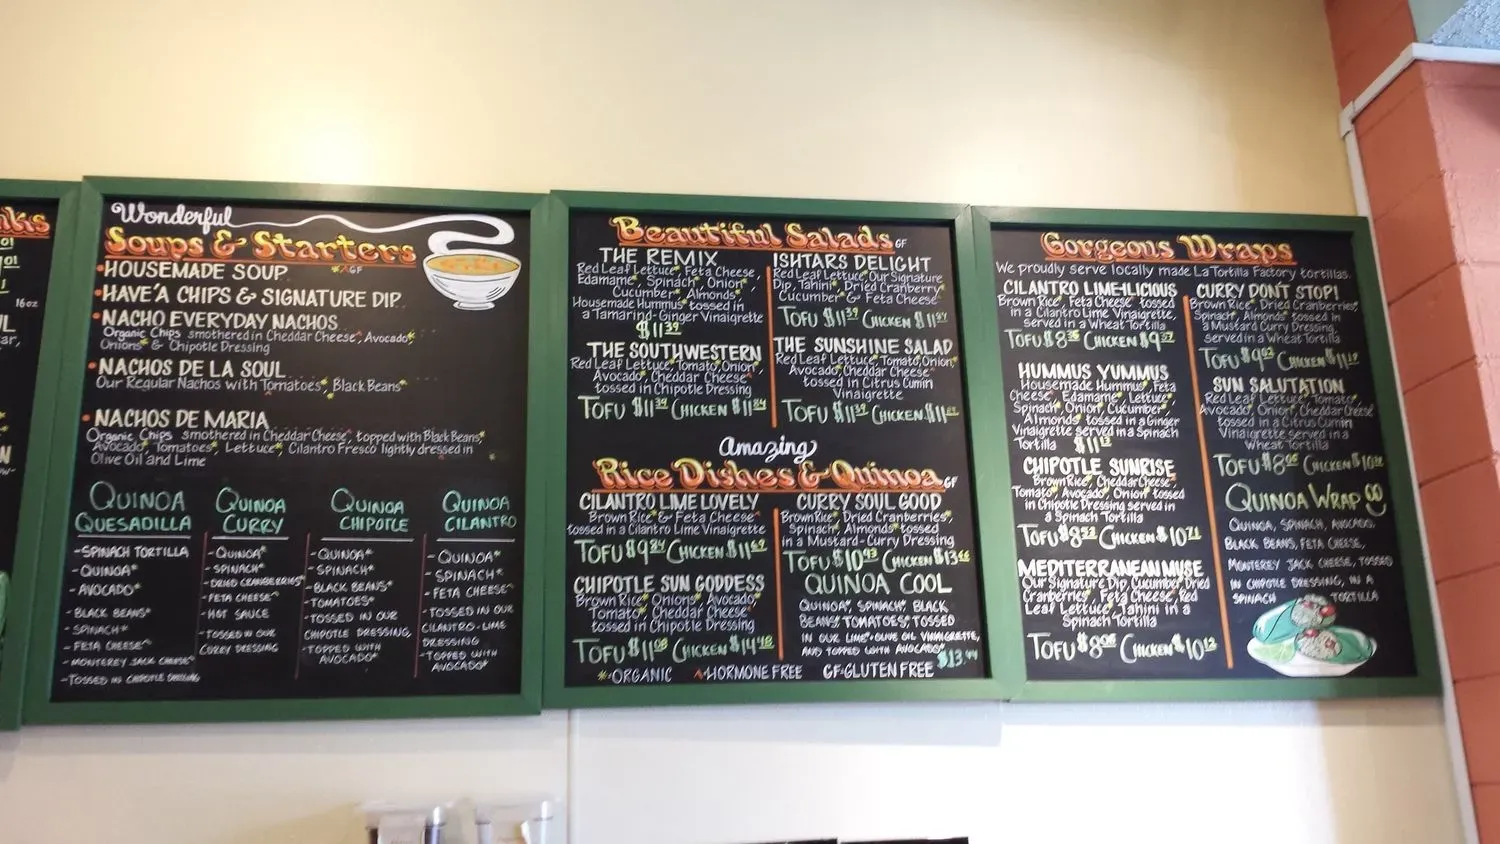 nks
16oz
Wonderful
Soups & Starters
*^GF
•HOUSEMADE SOUP
•HAVE'A CHIPS & SIGNATURE DIP
•NACHO EVERYDAY NACHOS
Organic Chips smothered in Cheddar Cheese^, Avocado*,
Onions* & Chipotle Dressing
•NACHOS DE LA SOUL
Our Regular Nachos with Tomatoes*, Black Beans*
•NACHOS DE MARIA
Organic Chips smothered in Cheddar Cheese^, topped with Black Beans*,
Avocado*, Tomatoes*, Lettuce*, Cilantro Fresco lightly dressed in
Olive Oil and Lime
QUINOA
QUESADILLA
-SPINACH TORTILLA
-QUINOA*
-AVOCADO*
-BLACK BEANS*
-SPINACH*
-FETA CHEESE^
-MONTEREY JACK CHEESE^
-TOSSED IN CHIPOTLE DRESSING
QUINOA
CURRY
-QUINOA*
-SPINACH*
-DRIED CRANBERRIES*
-FETA CHEESE^
-HOT SAUCE
-TOSSED IN OUR
CURRY DRESSING
QUINOA
CHIPOTLE
-QUINOA*
-SPINACH*
-BLACK BEANS*
-TOMATOES*
-TOSSED IN OUR
CHIPOTLE DRESSING,
-TOPPED WITH
AVOCADO*
QUINOA
CILANTRO
-QUINOA*
-SPINACH*
-FETA CHEESE^
-TOSSED IN OUR
CILANTRO-LIME
DRESSING
-TOPPED WITH
AVOCADO*
Beautiful Salads GF
THE REMIX
Red Leaf Lettuce*, Feta Cheese,
Edamame*, Spinach*, Onion*,
Cucumber*, Almonds*
Housemade Hummus* tossed in
a Tamarind-Ginger Vinaigrette
$11.39
THE SOUTHWESTERN
Red Leaf Lettuce, Tomato*, Onion*,
Avocado*, Cheddar Cheese^
tossed in Chipotle Dressing
TOFU $11.39 CHICKEN $11.84
ISHTARS DELIGHT
Red Leaf Lettuce*, Our Signature
Dip, Tahini*, Dried Cranberry*,
Cucumber* & Feta Cheese
TOFU $11.39 CHICKEN
THE SUNSHINE SALAD
Red Leaf Lettuce, Tomato, Onion*,
Avocado*, Cheddar Cheese^
tossed in Citrus Cumin
Vinaigrette
TOFU $11.39 CHICKEN
Amazing
Rice Dishes & Quinoa GF
CILANTRO LIME LOVELY
Brown Rice* & Feta Cheese^
tossed in a Cilantro Lime Vinaigrette
TOFU $9.84 CHICKEN $11.69
CHIPOTLE SUN GODDESS
Brown Rice*, Onions*, Avocado*,
Tomato*, Cheddar Cheese^
tossed in Chipotle Dressing
TOFU $11.08 CHICKEN $14.48
CURRY SOUL GOOD
Brown Rice*, Dried Cranberries*,
Spinach*, Almonds* tossed
in a Mustard-Curry Dressing
TOFU $10.93 CHICKEN $13.66
QUINOA COOL
QUINOA*, SPINACH*, BLACK
BEANS*, TOMATOES*, TOSSED
IN OUR LIME*-OLIVE OIL VINAIGRETTE,
AND TOPPED WITH AVOCADO*
$13.99
*=ORGANIC ^=HORMONE FREE GF=GLUTEN FREE
Gorgeous Wraps
We proudly serve locally made La Tortilla Factory tortillas.
CILANTRO LIME-ILICIOUS
Brown Rice*, Feta Cheese^ tossed
in a Cilantro Lime Vinaigrette,
served in a Wheat Tortilla
TOFU CHICKEN
HUMMUS YUMMUS
Housemade Hummus*, Feta
Cheese^, Edamame*, Lettuce*,
Spinach*, Onion*, Cucumber*,
Almonds* tossed in a Ginger
Vinaigrette served in a Spinach
Tortilla $11.13
CHIPOTLE SUNRISE
Brown Rice*, Cheddar Cheese^,
Tomato*, Avocado*, Onion* tossed
in Chipotle Dressing served in
a Spinach Tortilla
TOFU $8.52 CHICKEN $10.71
MEDITERRANEAN MUSE
Our Signature Dip, Cucumber*, Dried
Cranberries*, Feta Cheese^, Red
Leaf Lettuce*, Tahini in a
Spinach Tortilla
TOFU $8.05 CHICKEN $10.12
CURRY DON'T STOP!
Brown Rice*, Dried Cranberries*,
Spinach*, Almonds* tossed in
a Mustard Curry Dressing,
served in a Wheat Tortilla
TOFU CHICKEN
SUN SALUTATION
Red Leaf Lettuce*, Tomato*,
Avocado*, Onion*, Cheddar Cheese^
tossed in a Citrus Cumin
Vinaigrette served in a
Wheat Tortilla
TOFU CHICKEN
QUINOA WRAP
QUINOA, SPINACH, AVOCADO,
BLACK BEANS, FETA CHEESE,
MONTEREY JACK CHEESE, TOSSED
IN CHIPOTLE DRESSING, IN A
SPINACH TORTILLA